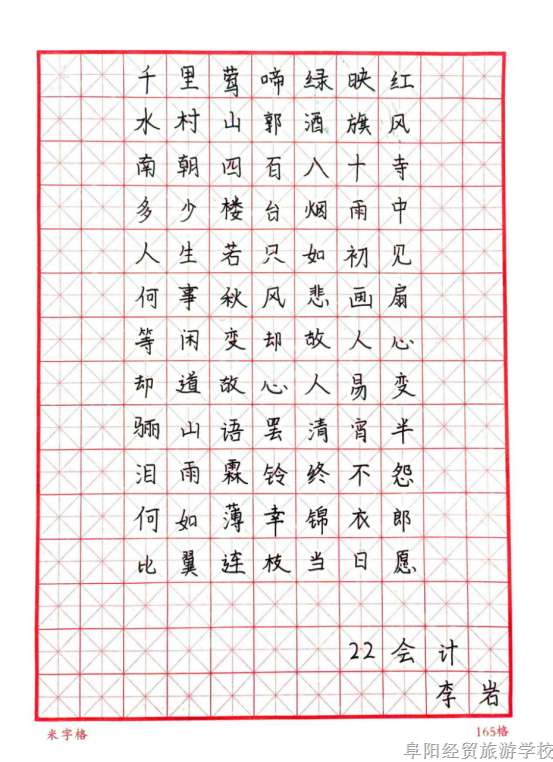 千里莺啼绿映红
水村山郭酒旗风
南朝四百八十寺
多少楼台烟雨中
人生若只如初见
何事秋风悲画扇
等闲变却故人心
却道故心人易变
骊山语罢清宵半
泪雨霖铃终不怨
何如薄幸锦衣郎
比翼连枝当日愿
22会计
李岩
米字格 165格
阜阳经贸旅游学校